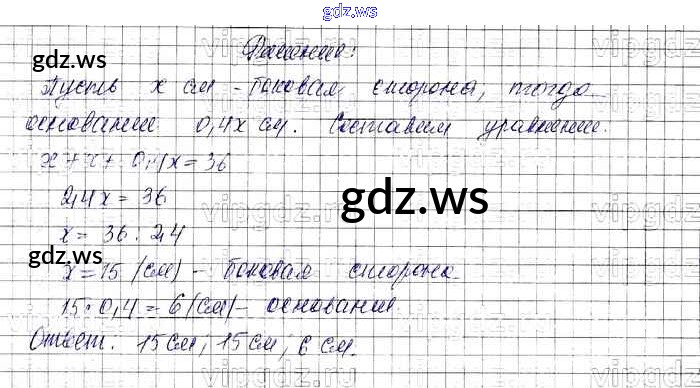 gdz.ws
gdz.ws
Решение:
Пусть x см - боковая сторона, тогда
основание 0,4x см. Составим уравнение.
x + x + 0,4x = 36
2,4x = 36
gdz.ws
x = 36 : 2,4
gdz.ws
x = 15 (см) - боковая сторона
15 · 0,4 = 6 (см) - основание
Ответ. 15 см, 15 см, 6 см.
gdz.ws